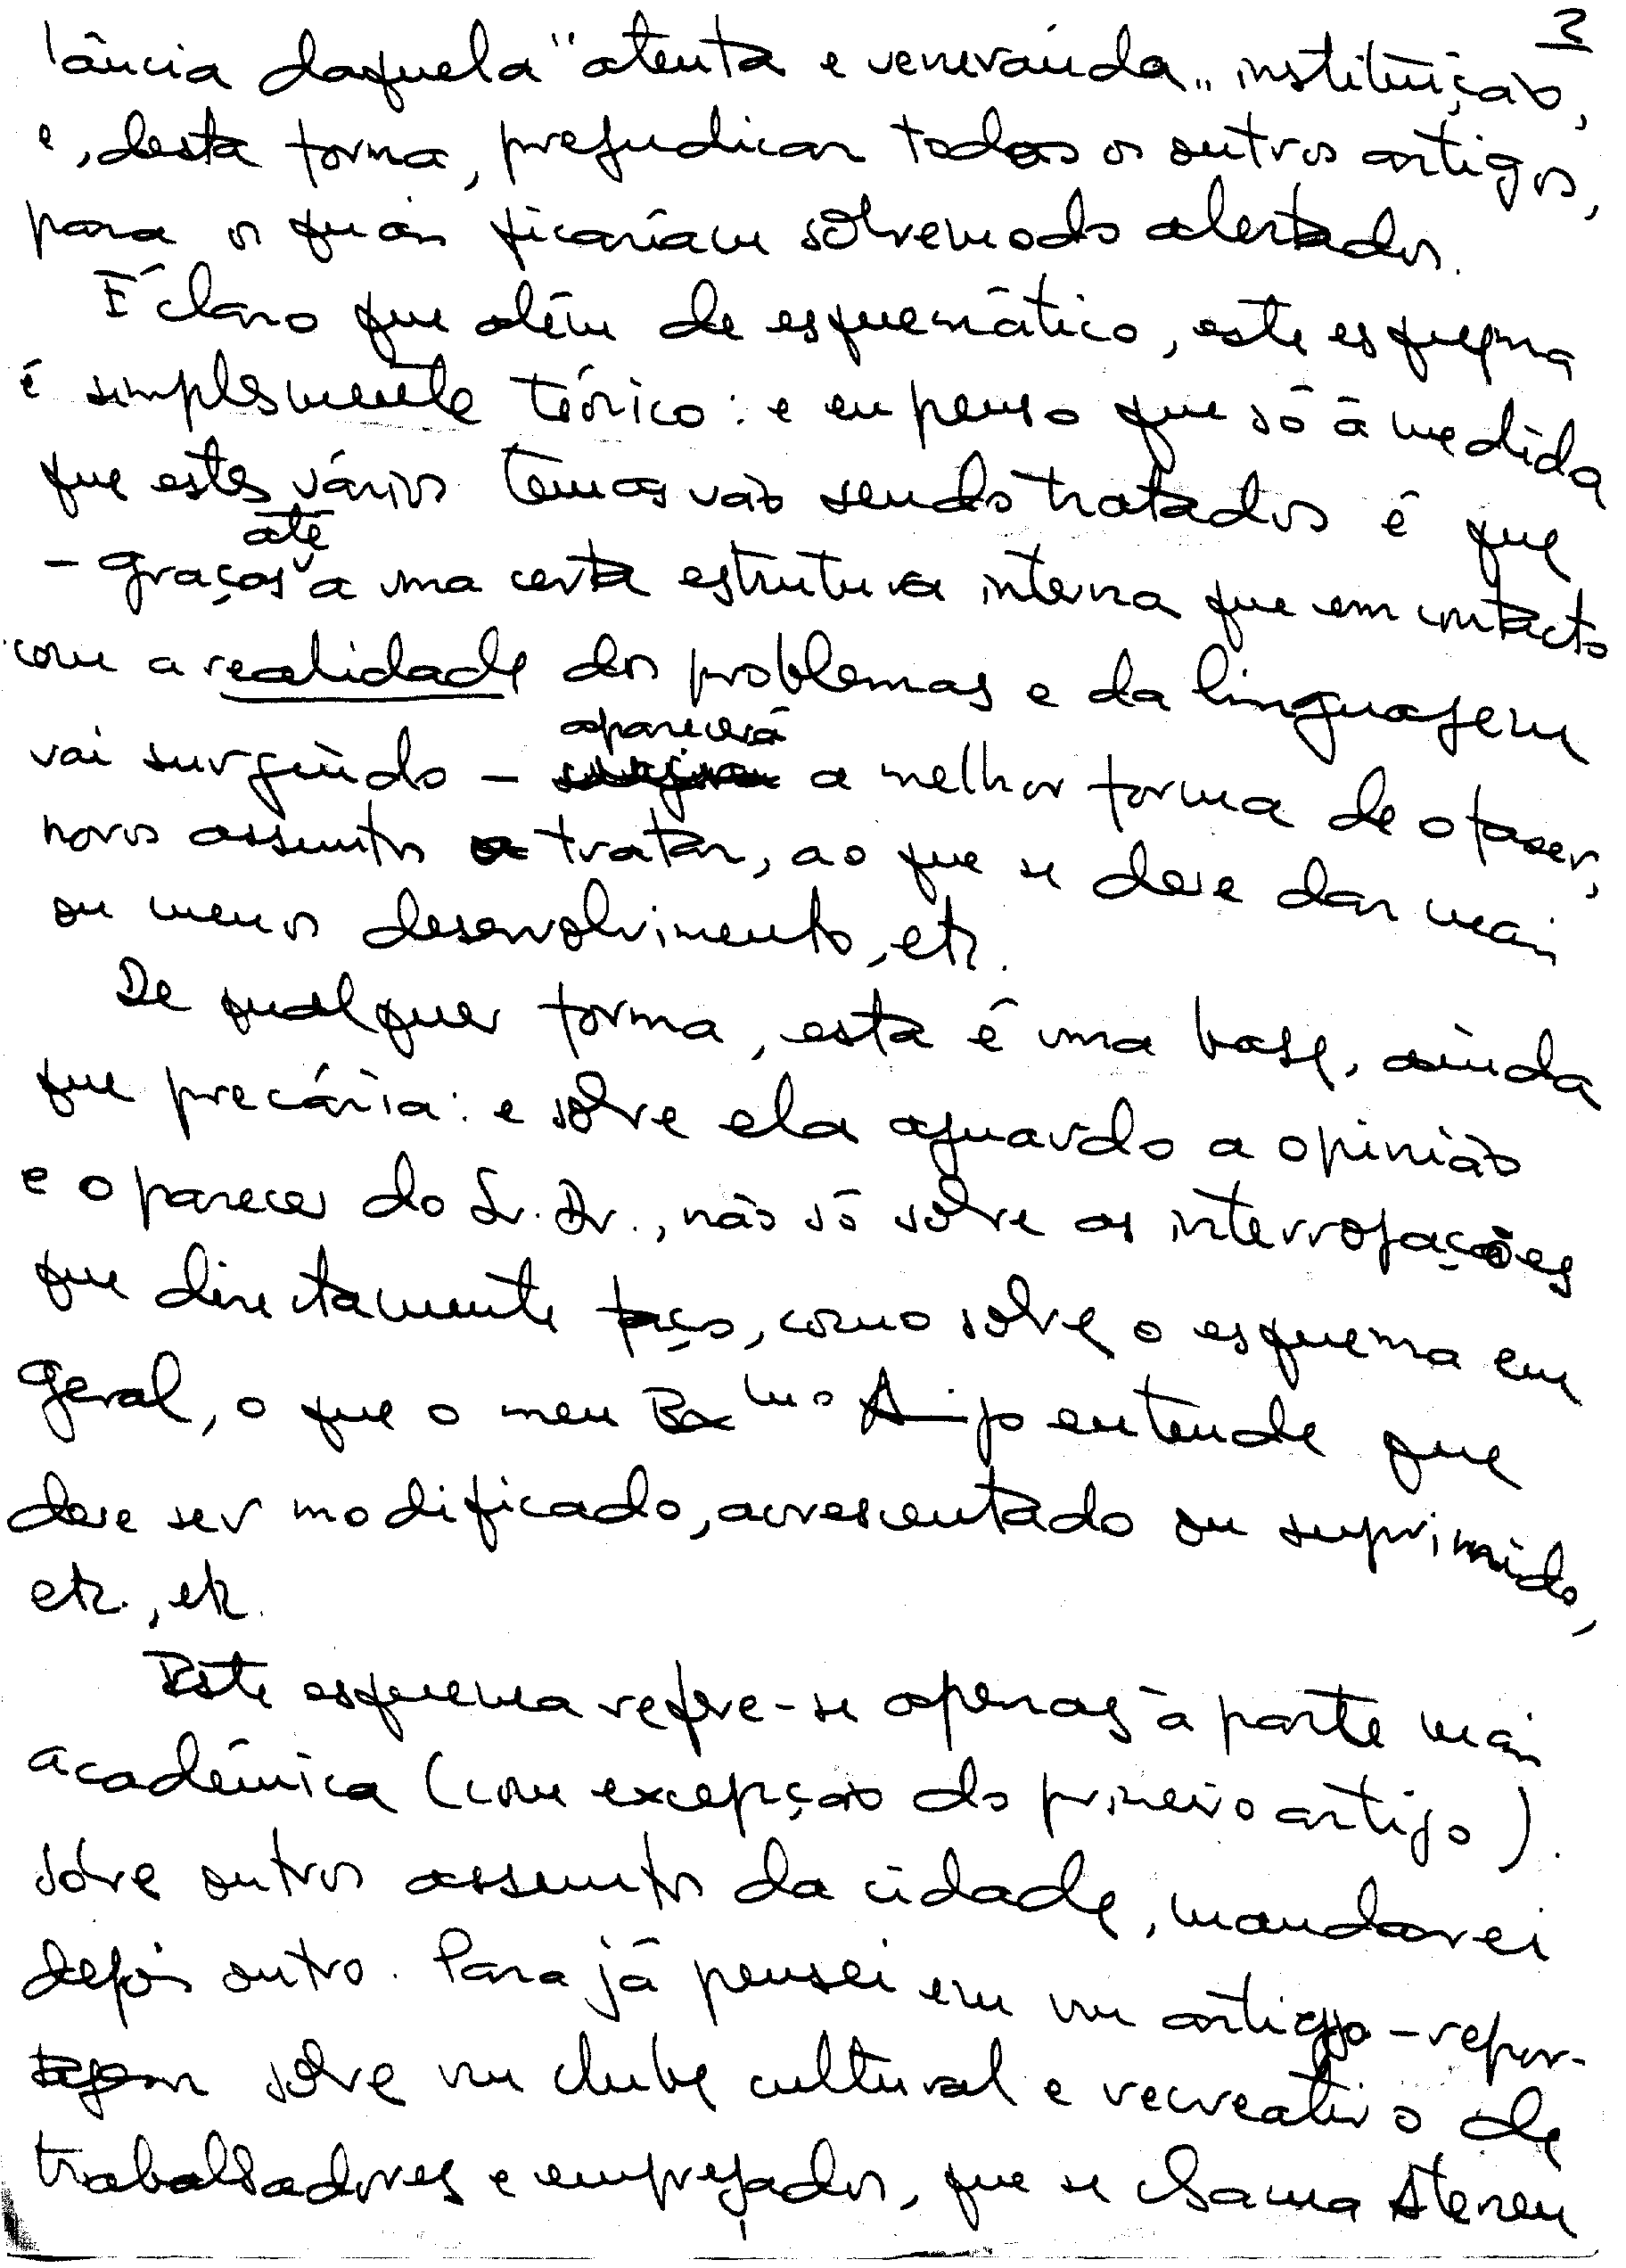 3
lância daquela "atenta e veneranda" instituição,
e, desta forma, prejudicar todos os outros artigos,
para os quais ficariam sôbremodo alertados.
É claro que além de esquemático, este esquema
é simplesmente teórico: e eu penso que só à medida
que estes vários temas vão sendo tratados é que
até
- graças a uma certa estrutura interna que em contacto
com a realidade dos problemas e da linguagem
aparecerá
vai surgindo - a melhor forma de o fazer,
novos assuntos a tratar, ao que se deve dar mais
ou menos desenvolvimento, etc.
De qualquer forma, esta é uma base, ainda
que precária: e sôbre ela aguardo a opinião
e o parecer do Sr. Dr., não só sôbre as interrogações
que directamente faço, como sôbre o esquema em
geral, o que o meu Exmo Amigo entende que
deve ser modificado, acrescentado ou suprimido,
etc., etc.
Este esquema refere-se apenas à parte mais
académica (com excepção do primeiro artigo).
Sôbre outros assuntos da cidade, mandarei
depois outro. Para já pensei em um artigo-repor-
tagem sôbre um clube cultural e recreativo de
trabalhadores e empregados, que se chama Ateneu